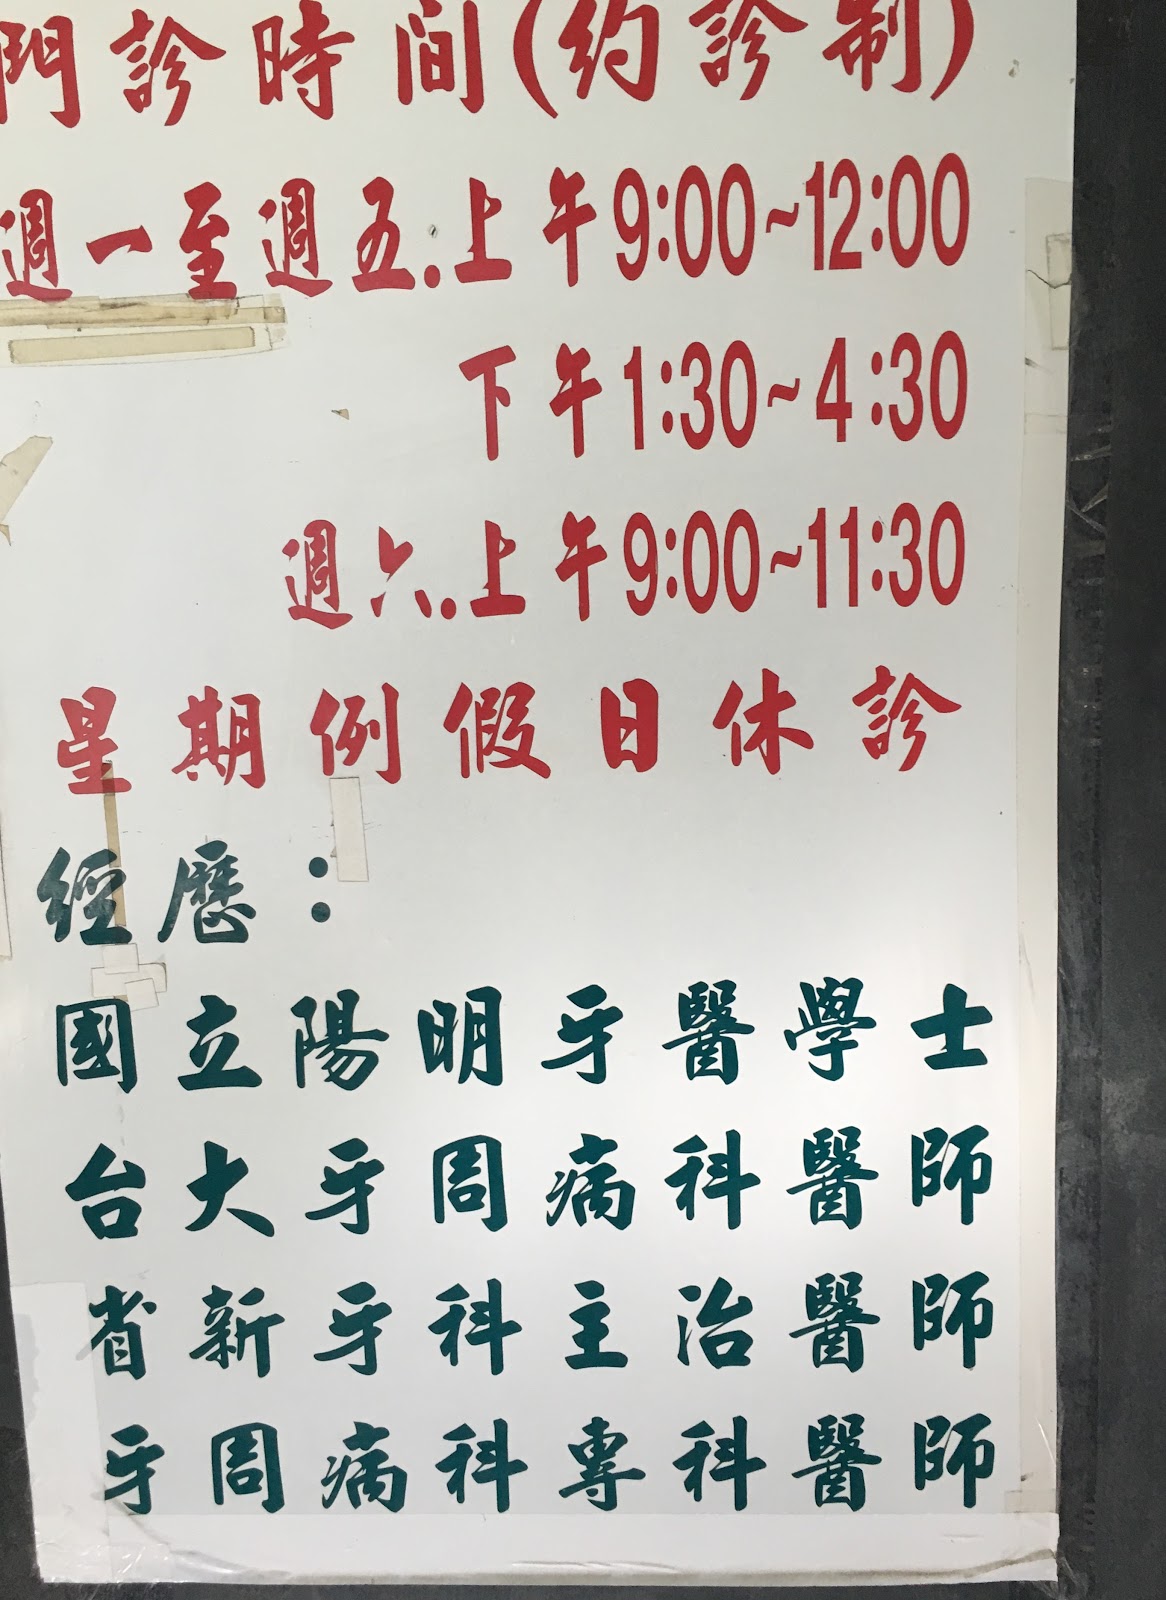 門診時間(約診制)
週一至週五.上午9:00~12:00
下午1:30~4:30
週六.上午9:00~11:30
星期例假日休診
經歷：
國立陽明牙醫學士
台大牙周病科醫師
省新牙科主治醫師
牙周病科專科醫師